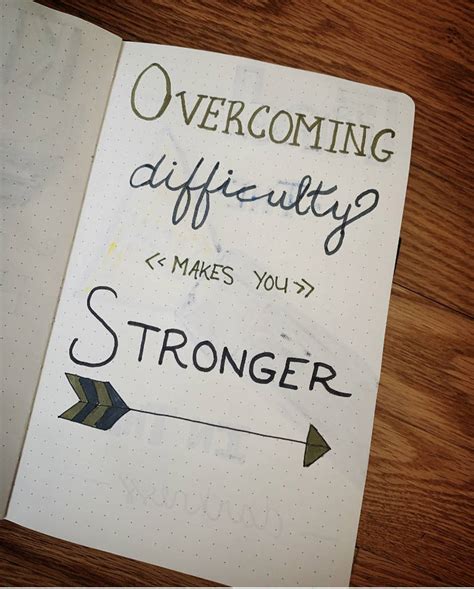 OVERCOMING
difficulty
<< MAKES YOU >>
STRONGER